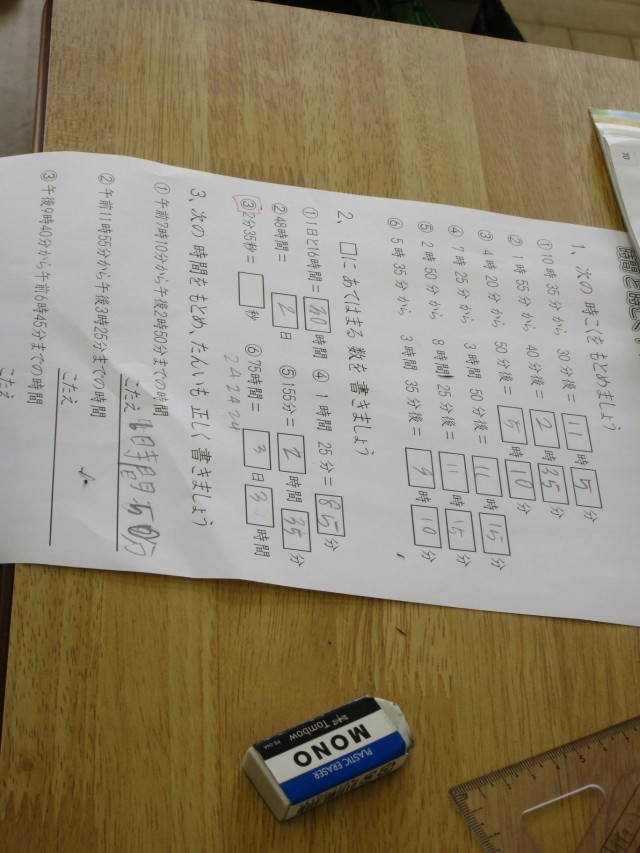 時間と時こ
1、次の時こくをもとめましょう
① 10時35分から 30分後= 11時5分
② 1時55分から 40分後= 2時35分
③ 4時20分から 50分後= 5時10分
④ 7時25分から 3時間50分後= 11時15分
⑤ 2時50分から 8時間25分後= 11時15分
⑥ 5時35分から 3時間35分後= 9時10分
2、□にあてはまる数を書きましょう
① 1日と16時間= 30時間 ④ 1時間25分= 85分
② 48時間= 2日 ⑤ 155分= 2時間35分
③ 2分35秒= 秒 ⑥ 75時間= 3日3時間
242424
3、次の時間をもとめ、たんいも正しく書きましょう
① 午前7時10分から午後2時50分までの時間
こたえ 時間50分
② 午前11時55分から午後3時25分までの時間
こたえ
③ 午後9時40分から午前6時45分までの時間
こたえ
MONO
PLASTIC ERASER
Tombow